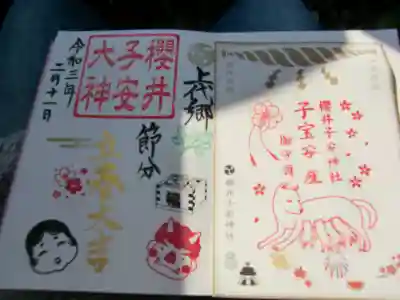 上代郷
櫻井
子安
大神
令和三年
二月十一日
節分
立春大吉
櫻井子安神社
子宝安産
御守護
櫻井子安神社